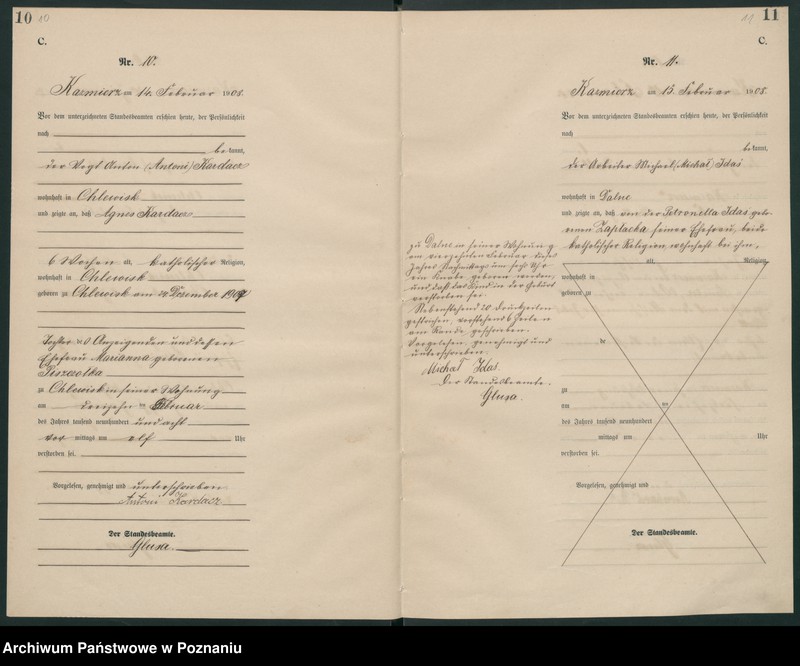 10 10
C.
Nr. 10.
Kazmierz am 14. Februar 1908.
Vor dem unterzeichneten Standesbeamten erschien heute, der Persönlichkeit
nach
bekannt,
der Vogt Anton (Antoni) Kardacz
wohnhaft in Chlewisk
und zeigte an, daß Agnes Kardacz
6 Wochen alt, katholischer Religion,
wohnhaft in Chlewisk
geboren zu Chlewisk am Dezember 1907
Tochter des Anzeigenden und dessen
Ehefrau Marianna geborenen
zu Chlewisk in seiner Wohnung
am dreizehn ten Februar
des Jahres tausend neunhundert und acht
vor mittags um elf Uhr
verstorben sei.
Vorgelesen, genehmigt und unterschrieben
Antoni Kardacz
Der Standesbeamte.
Glusa.
11 11
C.
Nr. 11.
Kazmierz am 15. Februar 1908.
Vor dem unterzeichneten Standesbeamten erschien heute, der Persönlichkeit
nach
bekannt,
der Arbeiter Michael (Michał) Idas
wohnhaft in Dalne
und zeigte an, daß von der Petronella Idas gebo-
renen Zapłacka seiner Ehefrau, beide
katholischer Religion wohnhaft bei ihm,
alt, Religion,
wohnhaft in
geboren zu
de
zu
am ten
des Jahres tausend neunhundert
mittags um Uhr
verstorben sei.
Vorgelesen, genehmigt und
Der Standesbeamte.
zu Dalne in seiner Wohnung
am vierzehnten Februar dieses
Jahres Nachmittags um sechs Uhr
ein Knabe geboren worden,
und daß das Kind in der Geburt
verstorben sei.
Nebenstehend 20 Druckzeilen
gestrichen, vorstehend 6 Zeilen
am Rande geschrieben.
Vorgelesen, genehmigt und
unterschrieben.
Michał Idas.
Der Standesbeamte.
Glusa.
Archiwum Państwowe w Poznaniu